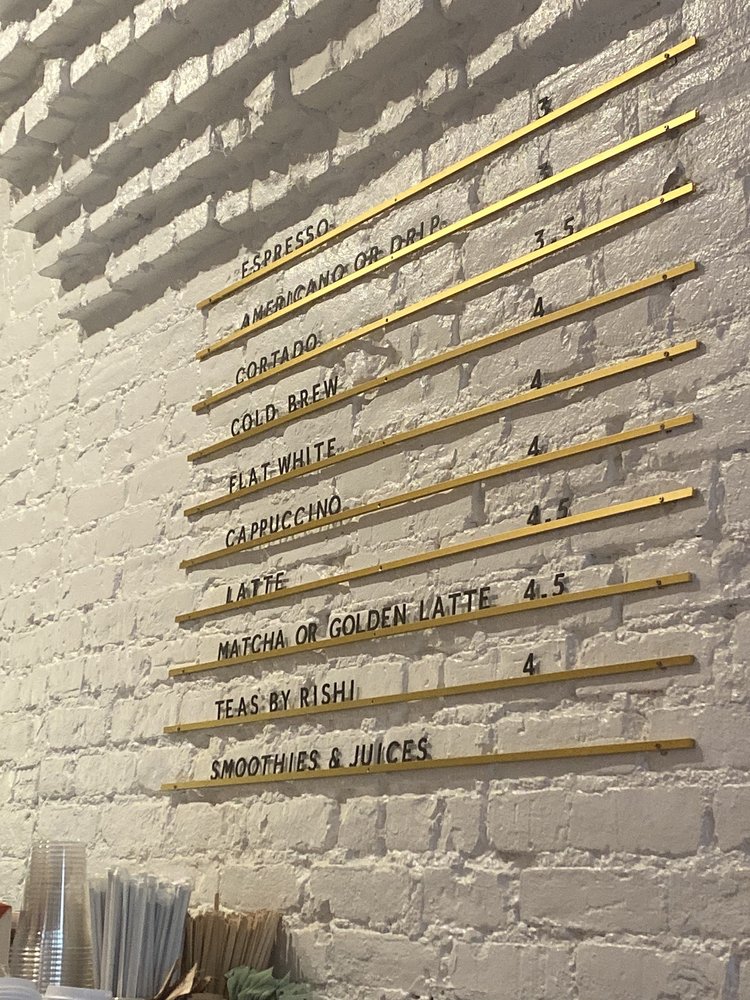 ESPRESSO 3
AMERICANO OR DRIP 3
CORTADO 3.5
COLD BREW 4
FLAT WHITE 4
CAPPUCCINO 4
LATTE 4.5
MATCHA OR GOLDEN LATTE 4.5
TEAS BY RISHI 4
SMOOTHIES & JUICES